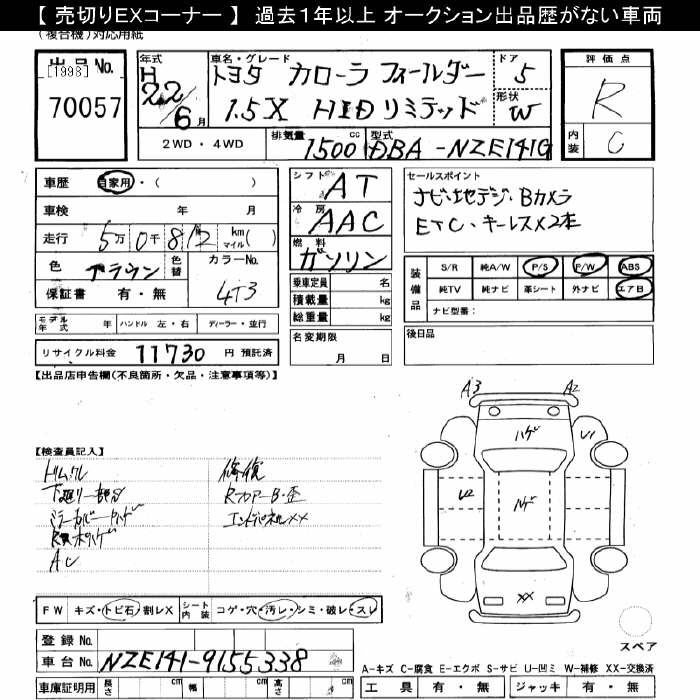 【 売切りEXコーナー 】 過去1年以上 オークション出品歴がない車両
(複合機)対応用紙
出品 No. [1998] 70057
年式 H 22 / 6 月
車名・グレード トヨタ カローラ フィールダー
1.5X HIDリミテッド
ドア 5
形状 W
評価点 R
内装 C
2WD・4WD
排気量 1500 cc
型式 DBA -NZE141G
車歴 自家用・( )
車検 年 月
走行 5万 0千 812 km マイル ( )
色 ブラウン 色替 カラーNo. 4T3
保証書 有・無
シフト AT
冷房 AAC
燃料 ガソリン
乗車定員 名
積載量 kg
総重量 kg
セールスポイント
ナビ・地デジ・Bカメラ
ETC・キーレス×2本
装備品 S/R 純A/W P/S P/W ABS
純TV 純ナビ 革シート 外ナビ エアB
ナビ型番:
モデル年式 年 ハンドル 左・右 ディーラー・並行
名変期限 月 日
後日品
リサイクル料金 11730 円 預託済
【出品店申告欄(不良箇所・欠品・注意事項等)】
A3 A2
ハゲ
U1
U2
ハゲ
XX
【検査員記入】
修復
下廻り一部サビ
Rフロアー・B・歪
エンドパネルXX
AC
FW キズ・トビ石・割レX シート内装 コゲ・穴・汚レ・シミ・破レ・スレ
登録 No.
車台 No. NZE141-9155338
車庫証明用 長さ cm 幅 cm 高さ cm
スペア
A-キズ C-腐食 E-エクボ S-サビ U-凹ミ W-補修 XX-交換済
工具 有・無 ジャッキ 有・無